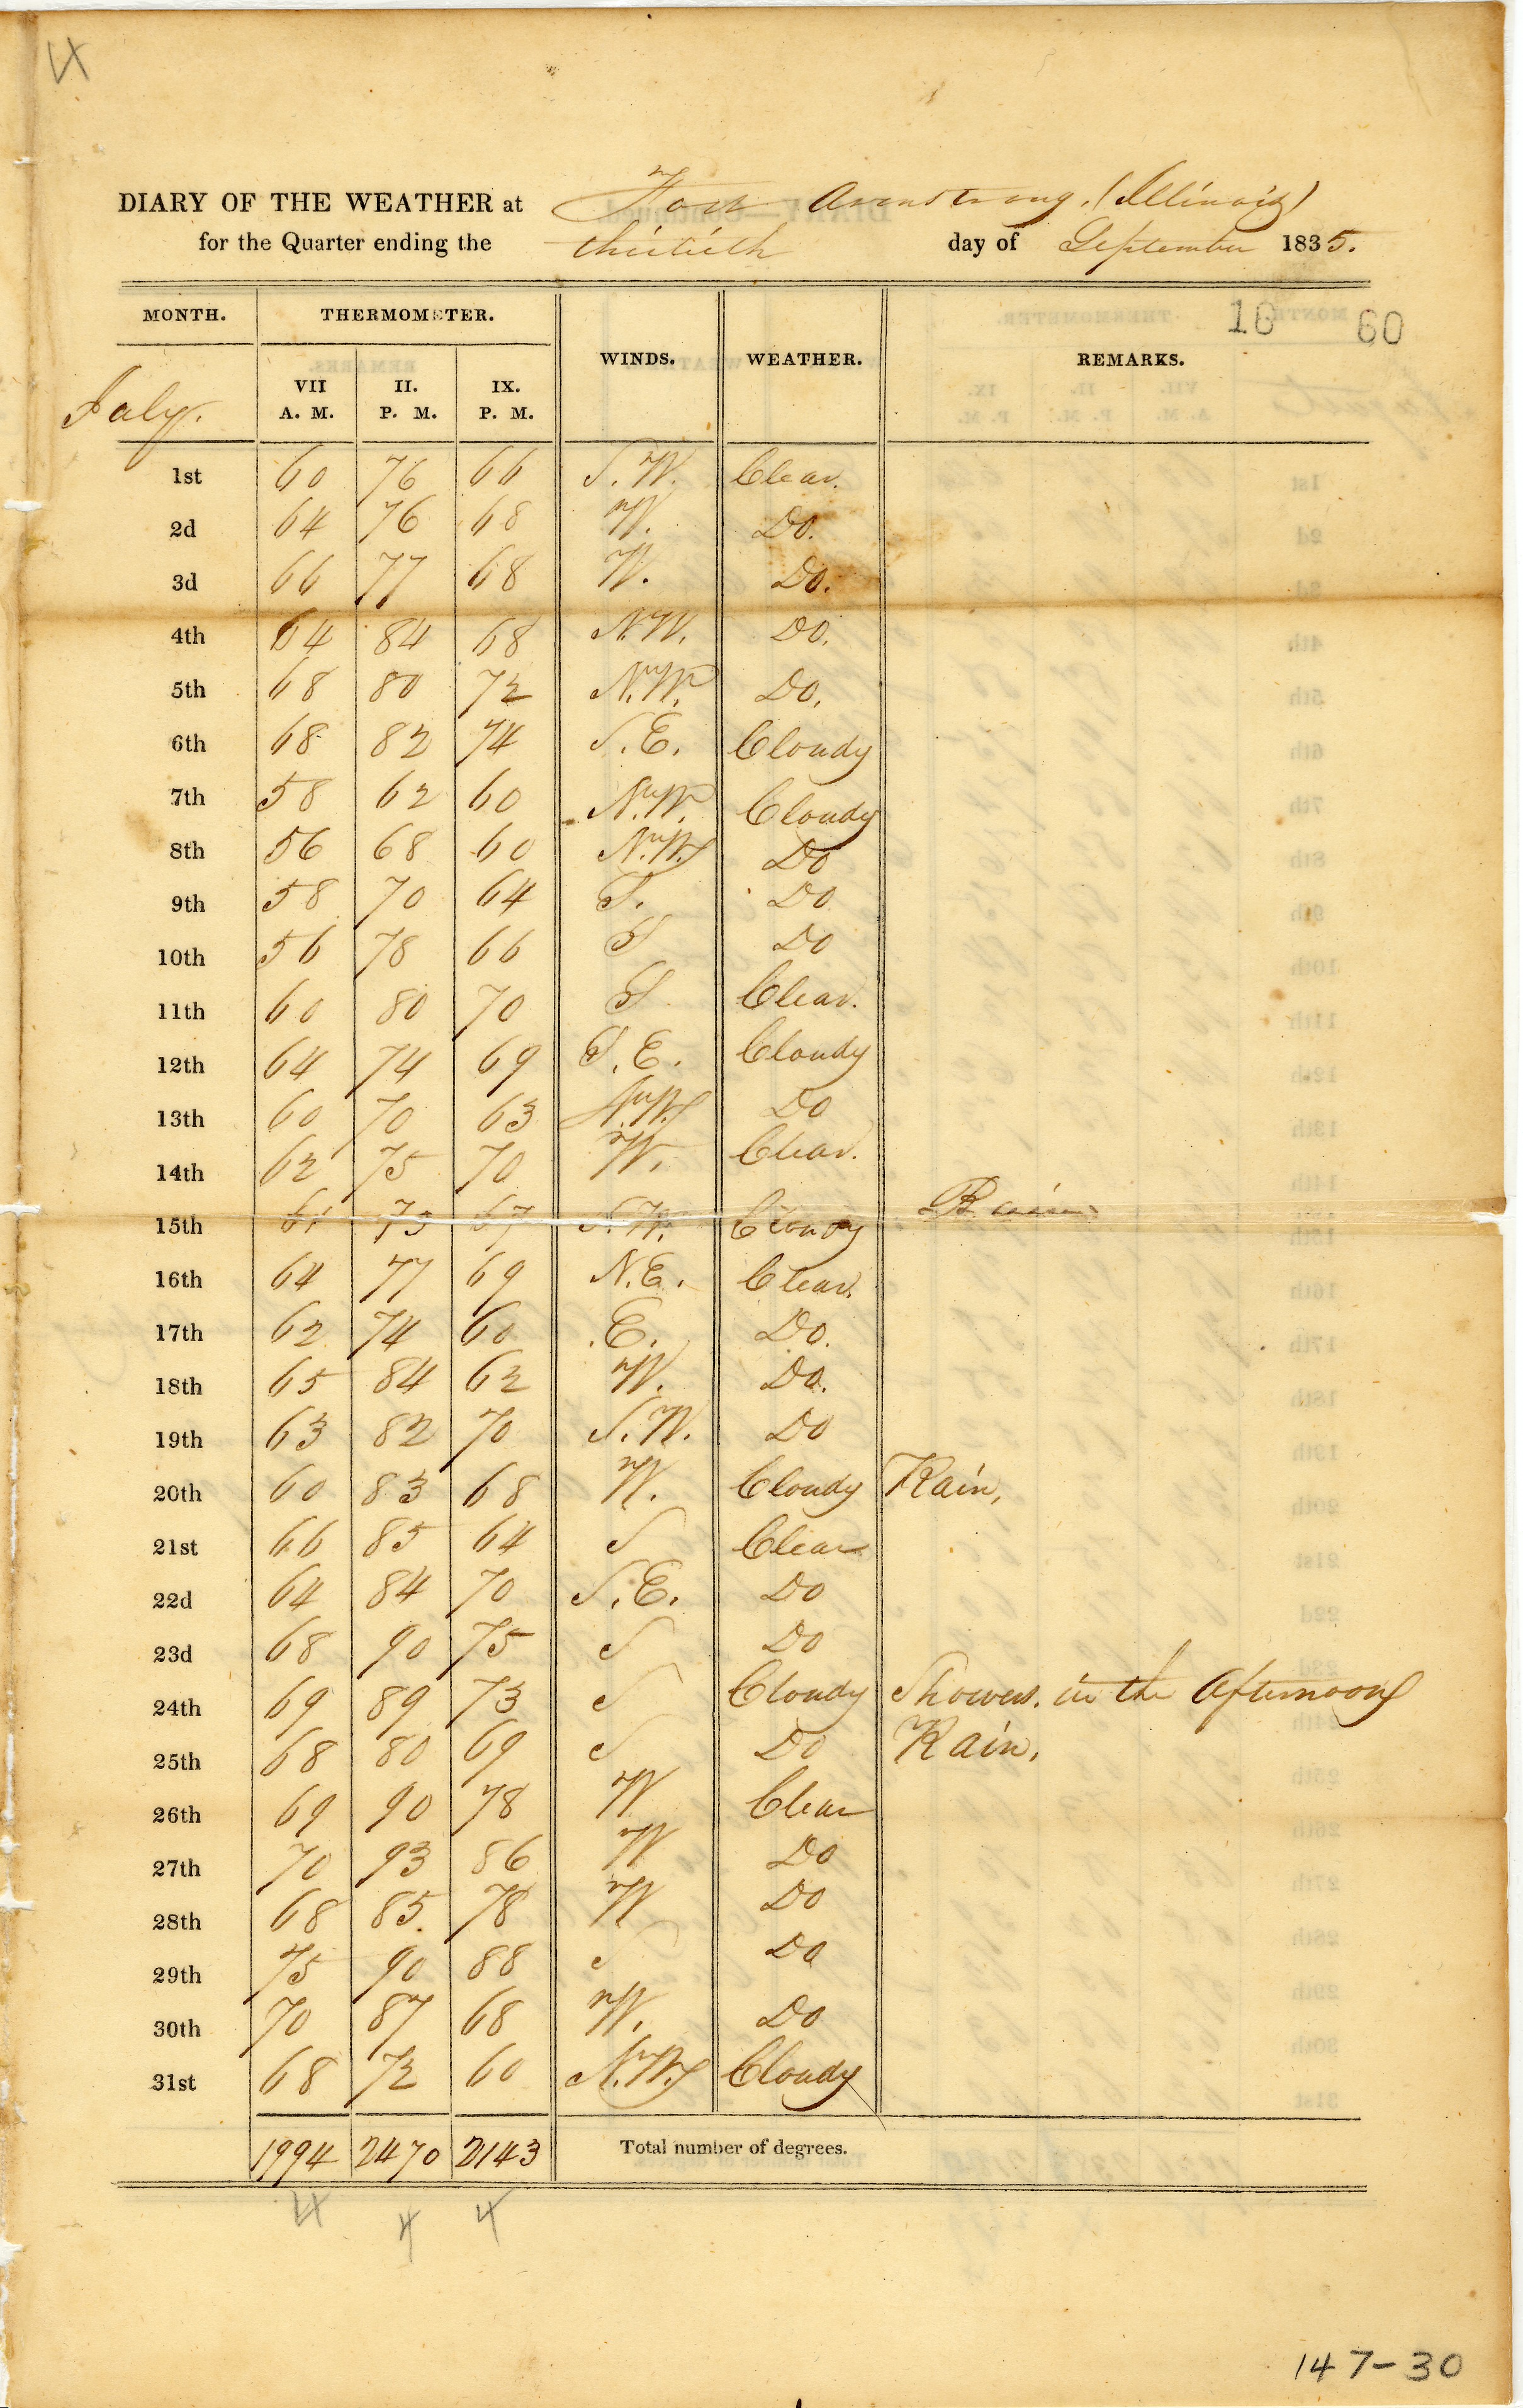 4
DIARY OF THE WEATHER at Fort Armstrong, (Illinois)
for the Quarter ending the thirtieth day of September 1835.
MONTH. THERMOMETER. WINDS. WEATHER. REMARKS. 10 60
July. VII A. M. II. P. M. IX. P. M.
1st 60 76 66 S.W. Clear.
2d 64 76 68 W. Do.
3d 66 77 68 W. Do.
4th 64 84 68 N.W. Do.
5th 68 80 72 N.W. Do.
6th 68 82 74 S.E. Cloudy
7th 58 62 60 N.W. Cloudy
8th 56 68 60 N.W. Do
9th 58 70 64 S. Do
10th 56 78 66 S Do
11th 60 80 70 S Clear.
12th 64 74 69 S.E. Cloudy
13th 60 70 63 N.W. Do
14th 62 75 70 W. Clear.
15th 61 73 67 Cloudy Rain
16th 64 77 69 N.E. Clear.
17th 62 74 60 E. Do.
18th 65 84 62 W. Do.
19th 63 82 70 S.W. Do
20th 60 83 68 W. Cloudy Rain,
21st 66 85 64 S Clear
22d 64 84 70 S.E. Do
23d 68 90 75 S Do
24th 69 89 73 S Cloudy Showers. in the Afternoon
25th 68 80 69 S Do Rain,
26th 69 90 78 W Clear
27th 70 93 86 W Do
28th 68 85. 78 W Do
29th 75 90 88 S Do
30th 70 87 68 W. Do
31st 68 72 60 N.W. Cloudy
1994 2470 2143 Total number of degrees.
4 4 4
147-30